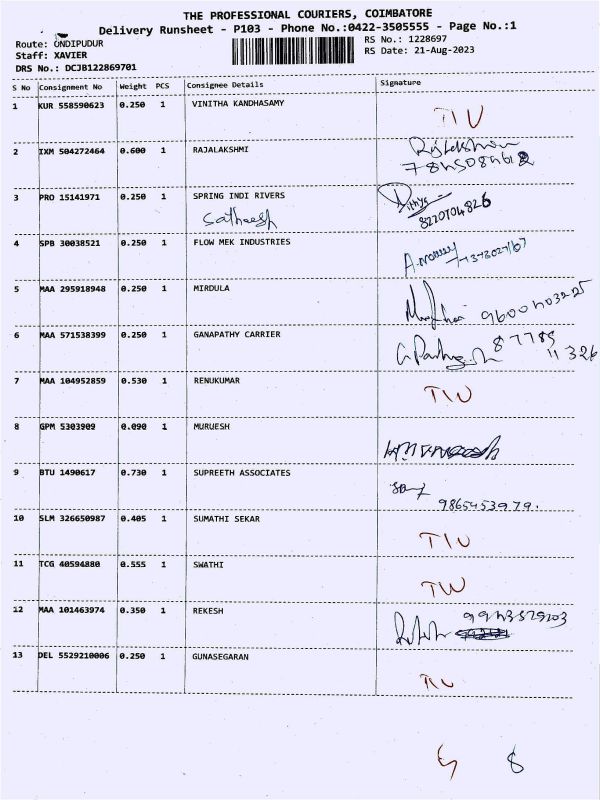 THE PROFESSIONAL COURIERS, COIMBATORE
Delivery Runsheet - P103 - Phone No.:0422-3505555 - Page No.:1
Route: ONDIPUDUR
RS No.: 1228697
Staff: XAVIER
RS Date: 21-Aug-2023
DRS No.: DCJB122869701
S No Consignment No Weight PCS Consignee Details Signature
1 KUR 558590623 0.250 1 VINITHA KANDHASAMY
2 IXM 504272464 0.600 1 RAJALAKSHMI
3 PRO 15141971 0.250 1 SPRING INDI RIVERS
Satheesh
8220704826
4 SPB 30038521 0.250 1 FLOW MEK INDUSTRIES
5 MAA 295918948 0.250 1 MIRDULA
9600403225
6 MAA 571538399 0.250 1 GANAPATHY CARRIER
87789
11326
7 MAA 104952859 0.530 1 RENUKUMAR
8 GPM 5303909 0.090 1 MURUESH
9 BTU 1490617 0.730 1 SUPREETH ASSOCIATES
9865453979.
10 SLM 326650987 0.405 1 SUMATHI SEKAR
11 TCG 40594880 0.555 1 SWATHI
12 MAA 101463974 0.350 1 REKESH
13 DEL 5529210006 0.250 1 GUNASEGARAN
5 8